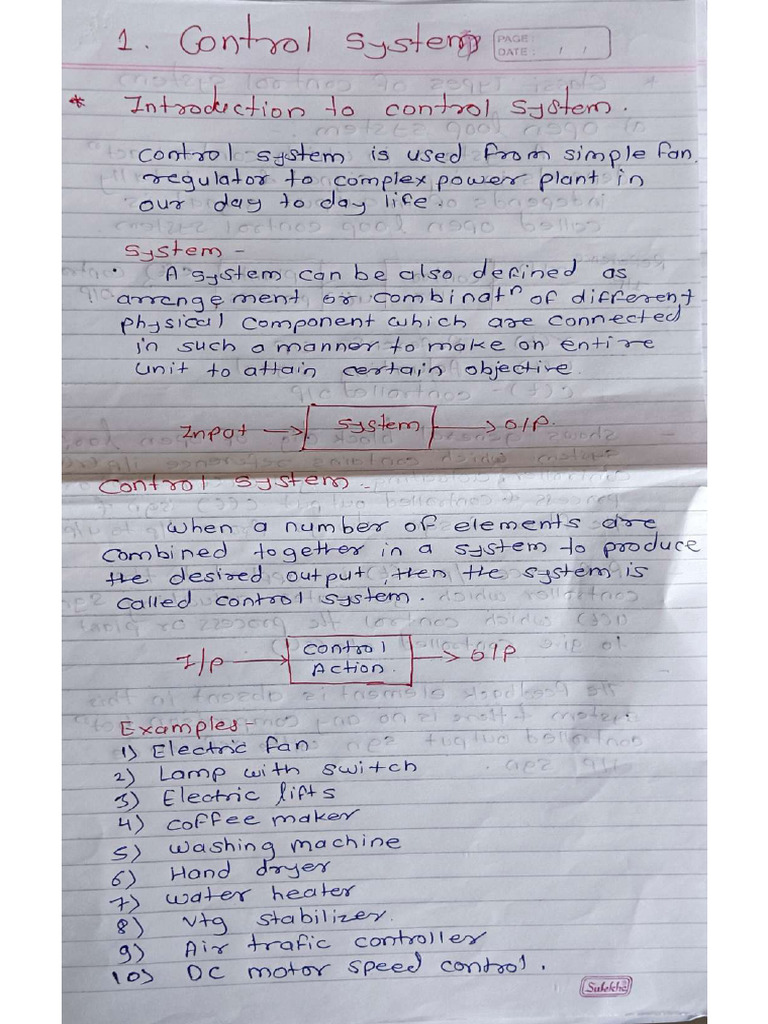 1. Control System
PAGE:
DATE: / /
* Introduction to control system.
control system is used from simple fan.
regulator to complex power plant in
our day to day life.
System -
A system can be also defined as
arrangement or combinatⁿ of different
physical component which are connected
in such a manner to make an entire
unit to attain certain objective.
Input → System → O/P.
Control system -
When a number of elements are
combined together in a system to produce
the desired output, then the system is
called control system.
I/p → Control Action. → O/P
Examples -
1) Electric fan
2) Lamp with switch
3) Electric lifts
4) Coffee maker
5) Washing machine
6) Hand dryer
7) Water heater
8) Vtg stabilizer.
9) Air trafic controller
10) DC motor speed control.
Sulekha